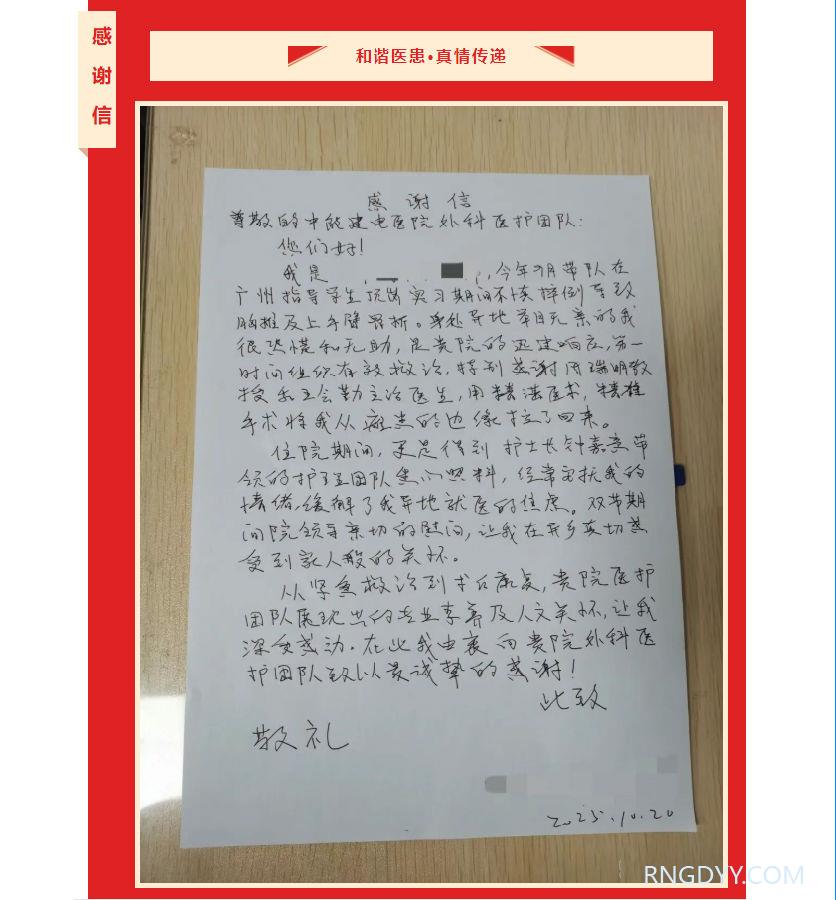 感谢信
和谐医患·真情传递
感谢信
尊敬的中能建电医院外科医护团队:
您们好!
我是 ,今年9月带队在
广州指导学生 实习期间不慎摔倒导致
胸椎及上手臂骨折。身处异地举目无亲的我
很恐慌和无助,是贵院的迅速响应,第一
时间组织有效救治,特别感谢周瑞明教
授和王会勤主治医生,用精湛医术,精准
手术将我从 的边缘拉了回来。
住院期间,更是得到护士长钟嘉 带
领的护理团队悉心照料,经常安抚我的
情绪,缓解了我异地就医的焦虑。双节期
间院领导亲切的慰问,让我在异乡真切感
受到家人般的关怀。
从紧急救治到术后康复,贵院医护
团队展现出的专业素养及人文关怀,让我
深受感动。在此我由衷向贵院外科医
护团队致以最诚挚的感谢!
此致
敬礼
2025.10.20
RNGDYY.COM